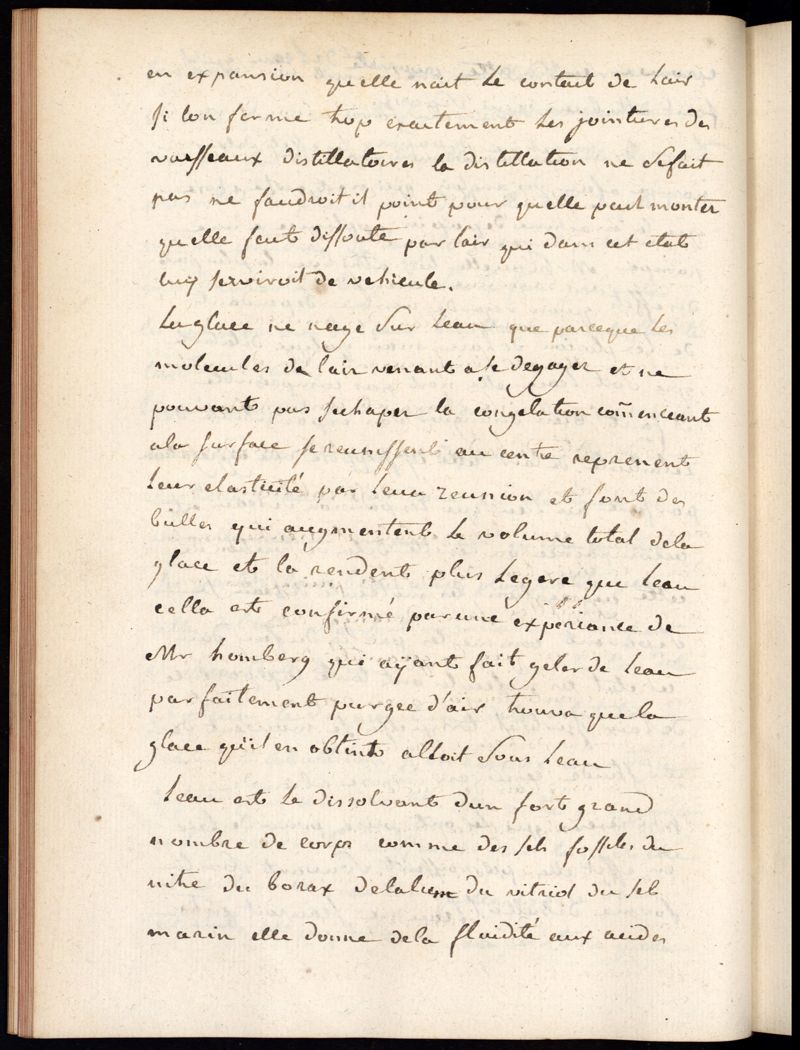 en expansion quelle nait le contact de lair
si lon ferme trop exactement les jointures des
vaisseaux distillatoires la distillation ne sefait
pas ne faudroit il point pour quelle peut monter
quelle feut dissoute par lair qui dans cet etat
luy serviroit de vehicule.
La glace ne nage sur leau que parceque les
molecules de lair venant a se degager et ne
pouvant pas sechaper la congelation com̃enceant
ala surface se reunissent au centre reprenent
leur elasticité par leur reunion et font des
bulles qui augmentent le volume total dela
glace et la rendent plus legere que leau
cella est confirmé parune expériance de
Mr homberg qui aÿant fait geler de leau
parfaitement purgee d'air trouva quela
glace qu'il en obtint alloit sous leau
leau est le dissolvant dun fort grand
nombre de corps comme des sels fossiles du
nitre du borax delalum du vitriol du sel
marin elle donne dela fluidité aux acides